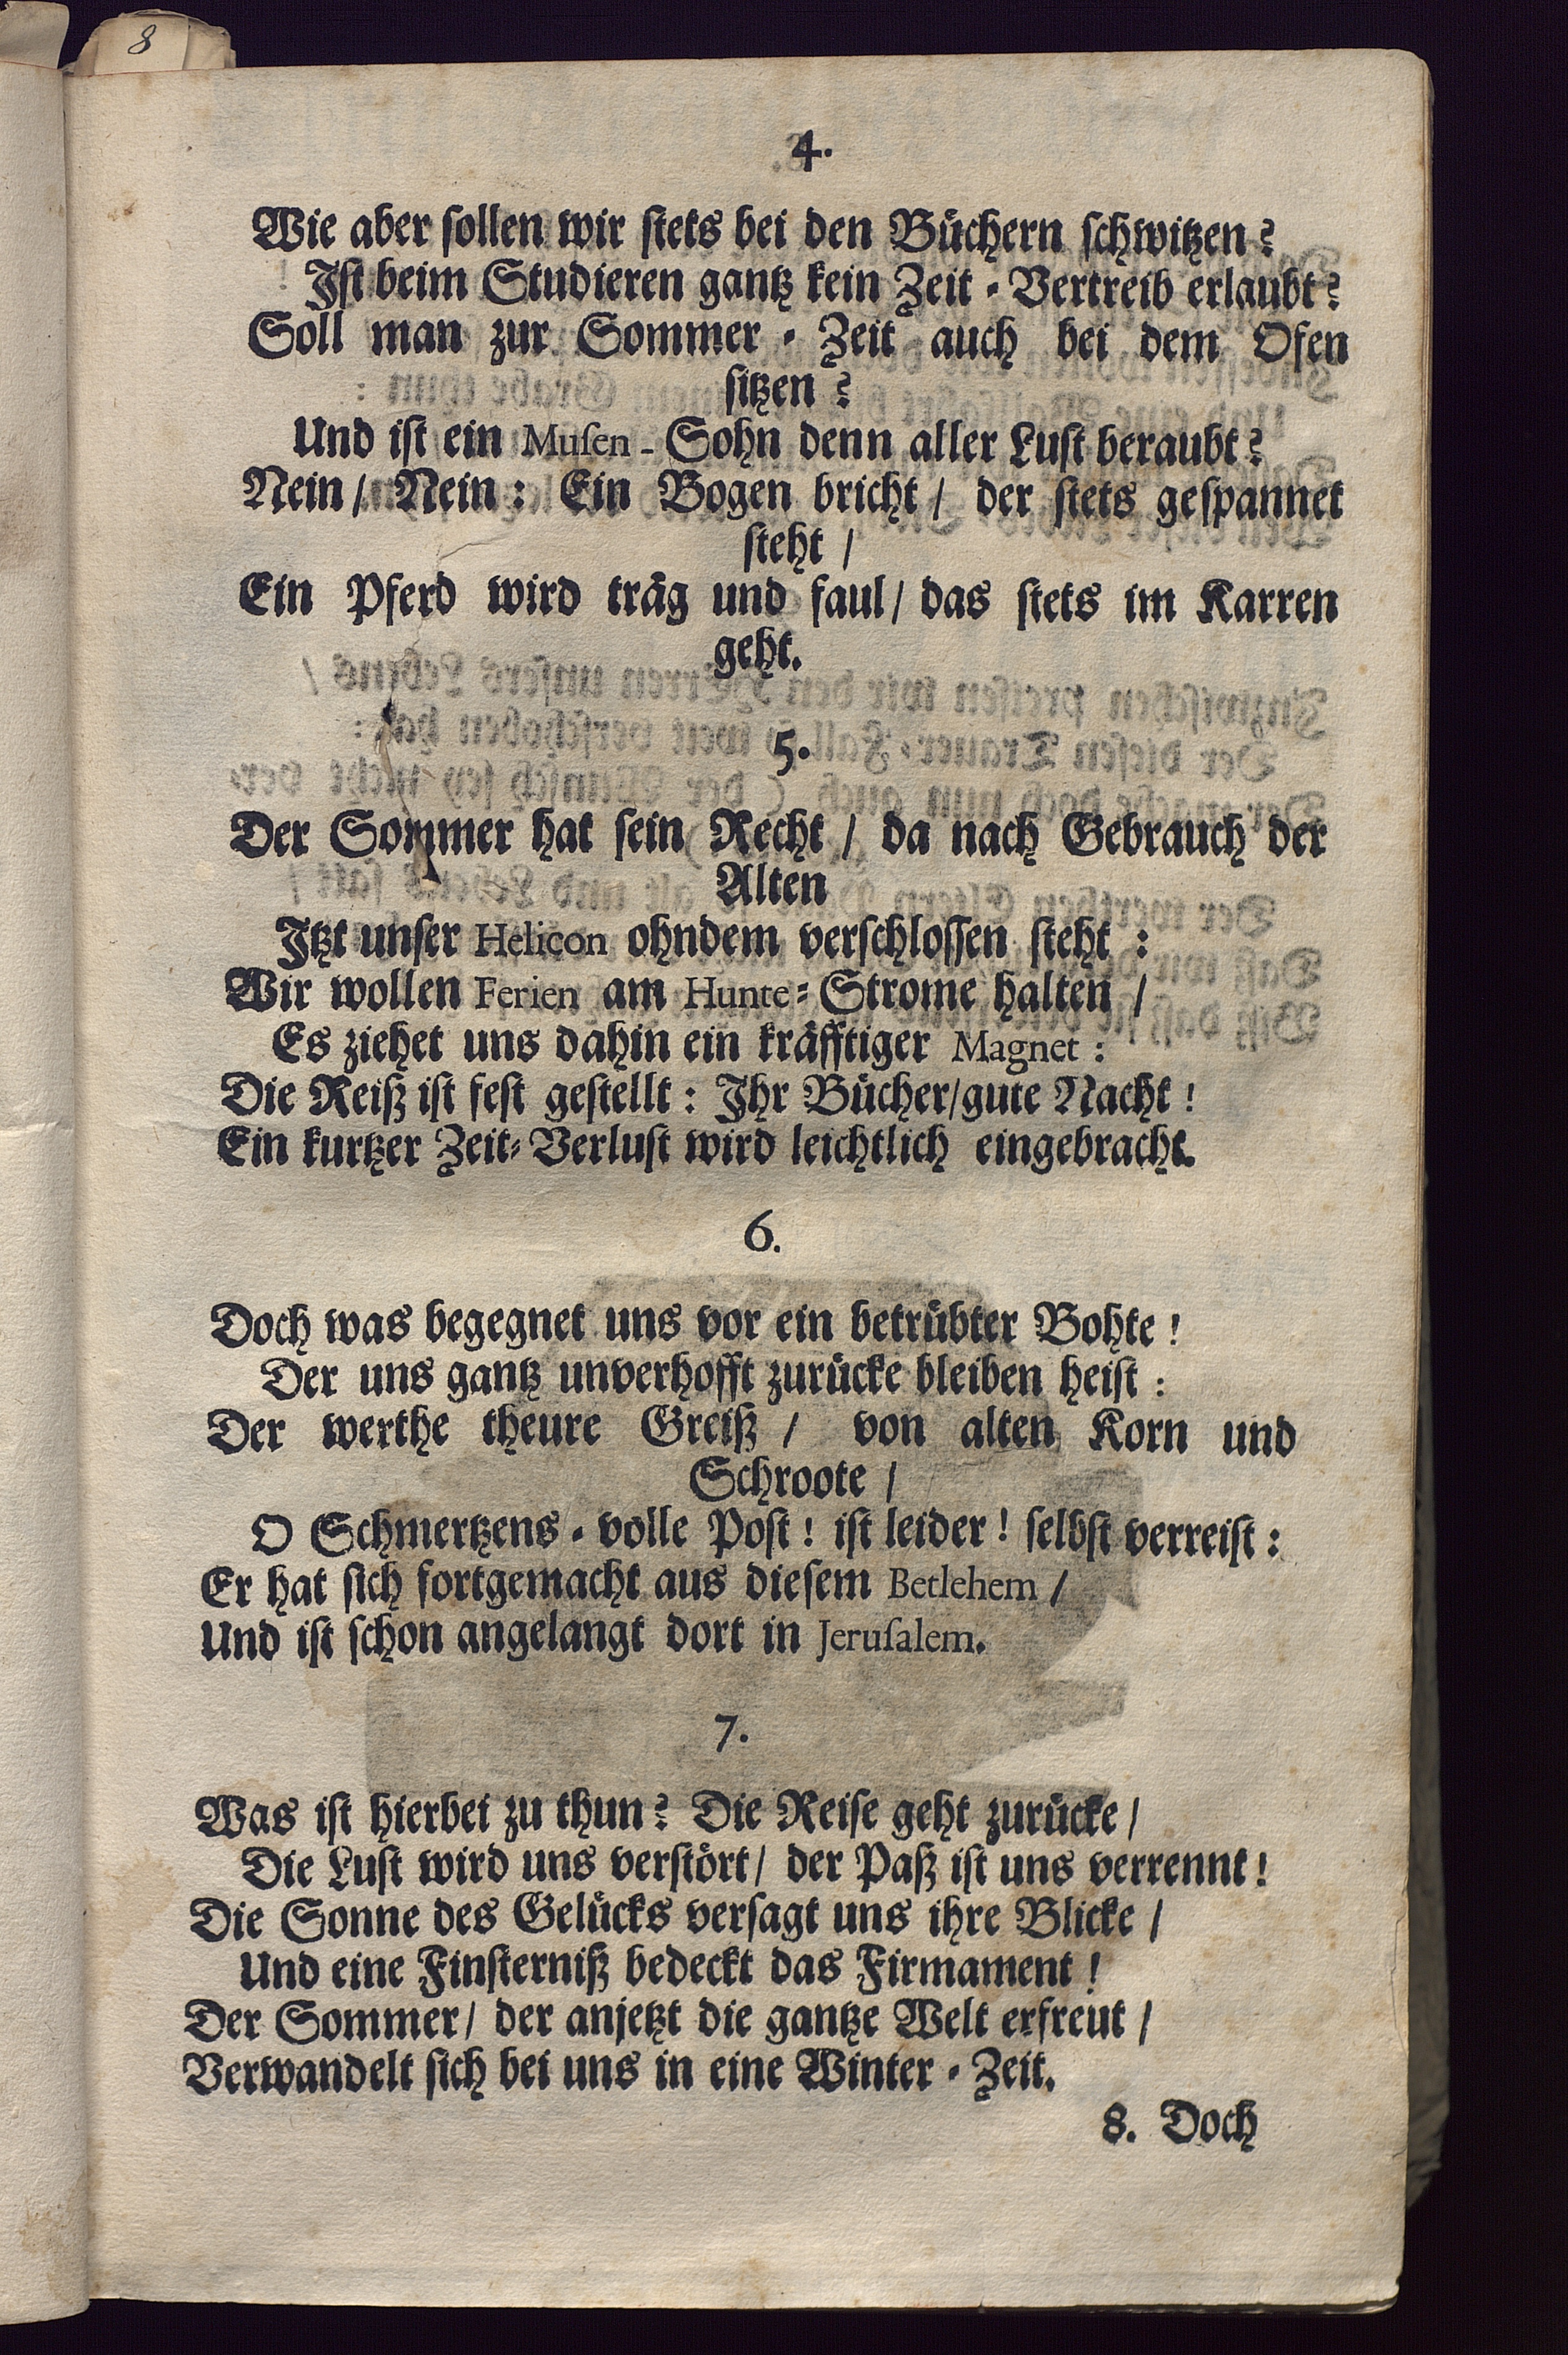 8
4.
Wie aber ſollen wir ſtets bei den Bůchern ſchwitzen?
Jſt beim Studieren gantz kein Zeit-Vertreib erlaubt?
Soll man zur Sommer-Zeit auch bei dem Ofen
ſitzen?
Und iſt ein Muſen-Sohn denn aller Luſt beraubt?
Nein/ Nein: Ein Bogen bricht/ der ſtets geſpannet
ſteht/
Ein Pferd wird tråg und faul/ das ſtets im Karren
geht.
5.
Der Sommer hat ſein Recht/ da nach Gebrauch der
Alten
Jtzt unſer Helicon ohndem verſchloſſen ſteht:
Wir wollen Ferien am Hunte-Strome halten/
Es ziehet uns dahin ein kråfftiger Magnet:
Die Reiß iſt feſt geſtellt: Jhr Bůcher/gute Nacht!
Ein kurtzer Zeit-Verluſt wird leichtlich eingebracht.
6.
Doch was begegnet uns vor ein betrůbter Bohte!
Der uns gantz unverhofft zurůcke bleiben heiſt:
Der werthe theure Greiß/ von alten Korn und
Schroote/
O Schmertzens-volle Poſt! iſt leider! ſelbſt verreiſt:
Er hat ſich fortgemacht aus dieſem Betlehem/
Und iſt ſchon angelangt dort in Jeruſalem.
7.
Was iſt hierbei zu thun? Die Reiſe geht zurůcke/
Die Luſt wird uns verſtört/ der Paß iſt uns verrennt!
Die Sonne des Gelůcks verſagt uns ihre Blicke/
Und eine Finſterniß bedeckt das Firmament!
Der Sommer/ der anjetzt die gantze Welt erfreut/
Verwandelt ſich bei uns in eine Winter-Zeit.
8. Doch